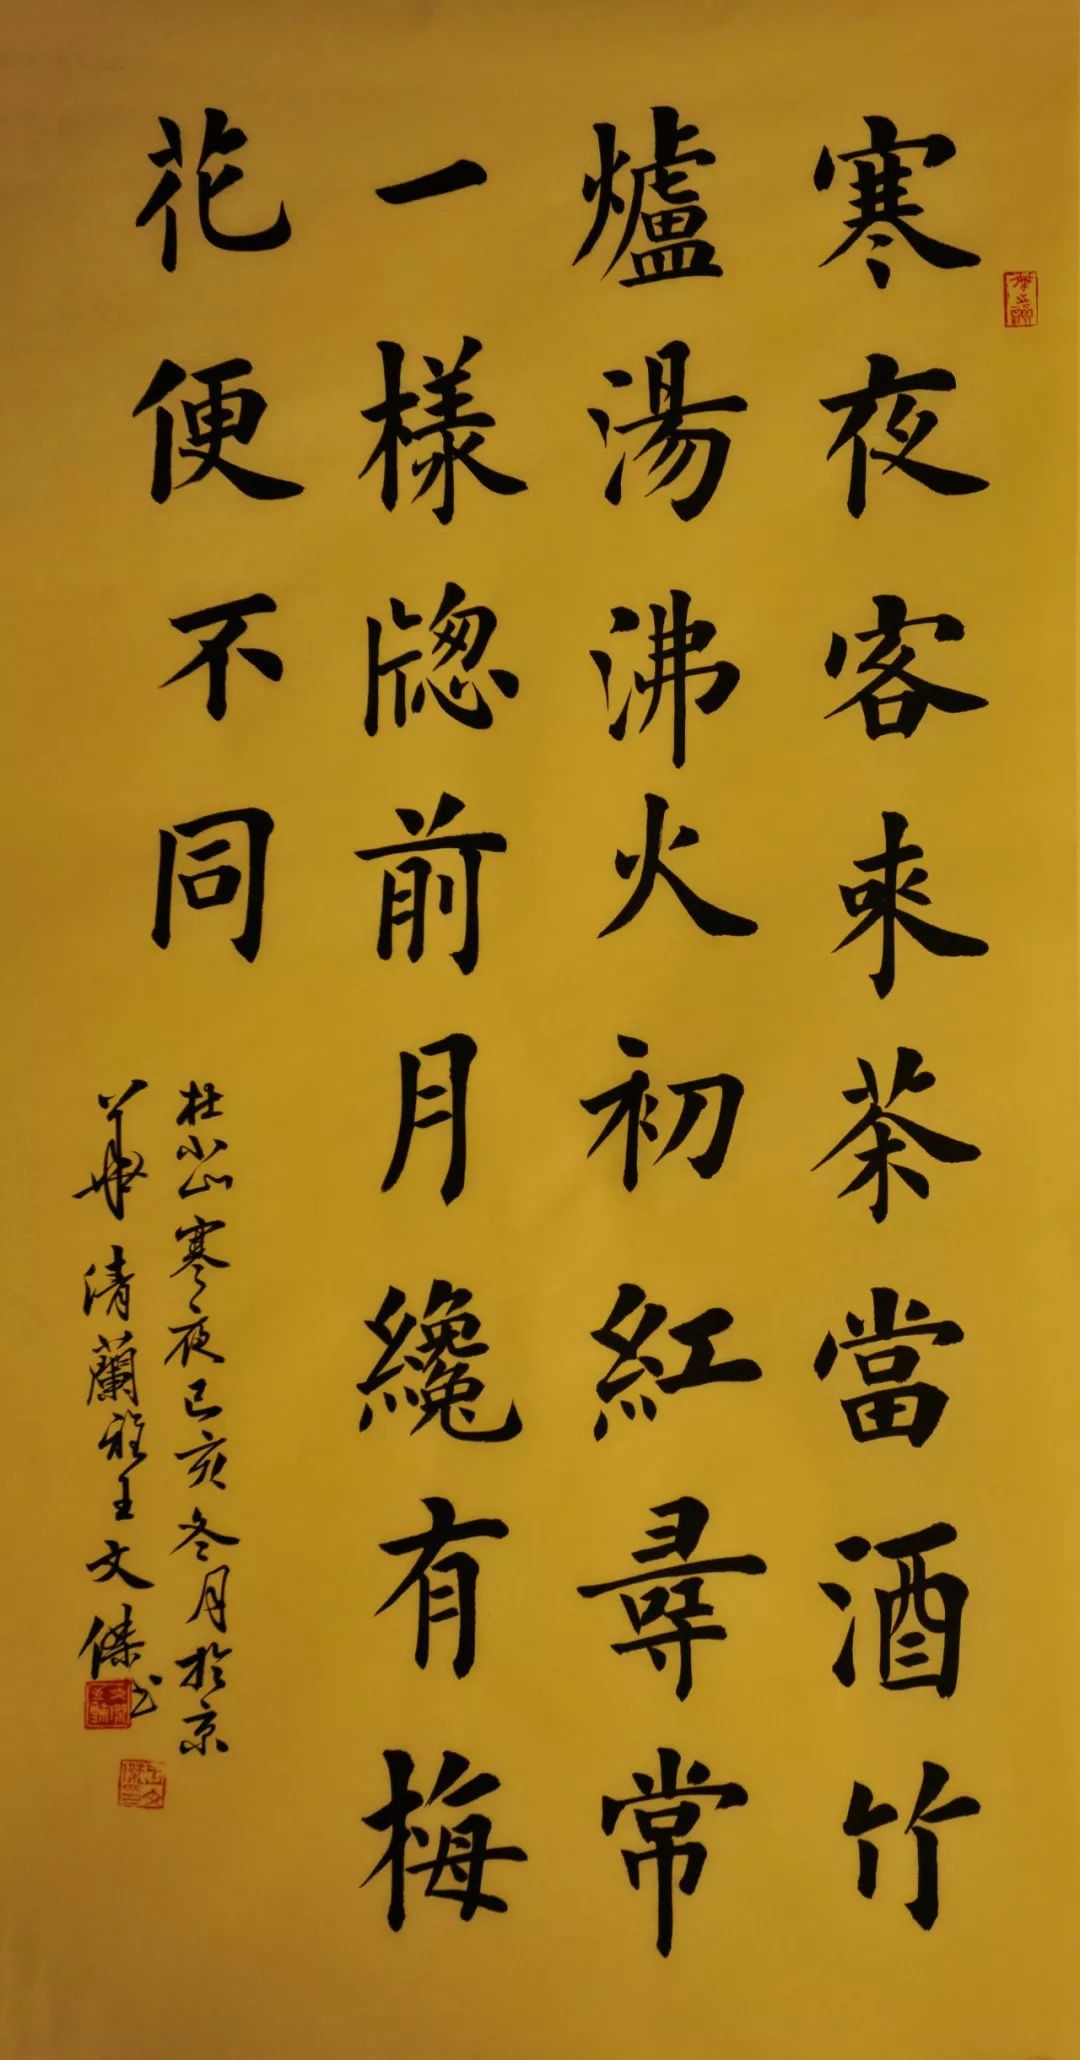 寒夜客來茶當酒竹
爐湯沸火初紅尋常
一樣牎前月纔有梅
花便不同
杜小山寒夜己亥冬月於京
華清蘭雅王文傑書